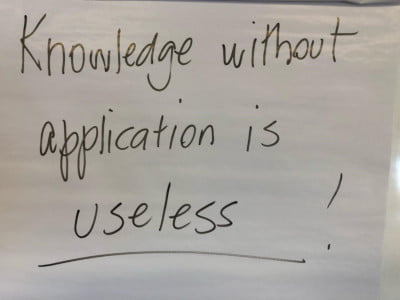 Knowledge without
application is
useless !